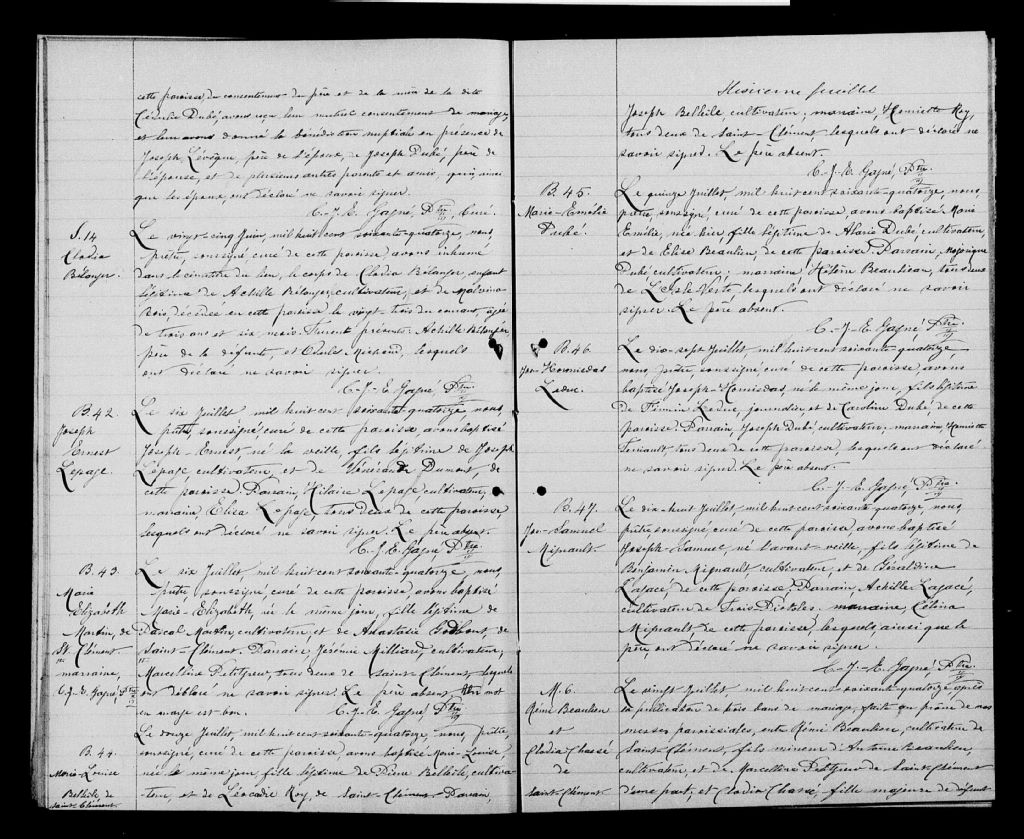 cette paroisse, du consentement du père et de la mère de la dite
Dubé, avons reçu leur mutuel consentement de mariage,
et leur avons donné la bénédiction nuptiale en présence de
Joseph Lévèque, père de l'époux, de Joseph Dubé, père de
l'épouse, et de plusieurs autres parents et amis, qui, ainsi
que les époux ont déclaré ne savoir signer.
C.-J.-E. Gagné, Ptre, Curé.
S. 14
Clodia
Bélanger.
Le vingt-cinq Juin, mil huit cent soixante-quatorze, nous,
prêtre, soussigné, curé de cette paroisse, avons inhumé
dans le cimetière du lieu, le corps de Clodia Bélanger, enfant
légitime de Achille Bélanger, cultivateur, et de Malvina
Bois, décédée en cette paroisse le vingt-trois du courant, âgée
de trois ans et six mois. Furent présents: Achille Bélanger,
père de la défunte, et Charles Michaud, lesquels
ont déclaré ne savoir signer.
C.-J.-E. Gagné, Ptre.
B. 42.
Joseph
Ernest
Lepage.
Le six Juillet, mil huit cent soixante-quatorze, nous,
prêtre, soussigné, curé de cette paroisse avons baptisé
Joseph-Ernest, né la veille, fils légitime de Joseph
Lepage, cultivateur, et de Dumont, de
cette paroisse. Parrain, Hilaire Lepage, cultivateur,
marraine, Elisa Lepage, tous deux de cette paroisse
lesquels ont déclaré ne savoir signer. Le père absent.
C.-J.-E. Gagné, Ptre.
B. 43
Marie
Elizabeth
Martin, de
St. Clément
marraine,
C.-J.-E. Gagné, Ptre
Le six Juillet, mil huit cent soixante-quatorze, nous,
prêtre, soussigné, curé de cette paroisse, avons baptisé
Marie-Elizabeth, née le même jour, fille légitime de
Pascal Martin, cultivateur, et de Anastasie Godbout, de
Saint-Clément. Parrain, Jérémie Milliard, cultivateur,
Marcelline Petitgrew, tous deux de Saint-Clément, lesquels
ont déclaré ne savoir signer. Le père absent. Un mot
en marge est bon. C.-J.-E. Gagné, Ptre.
B. 44
Marie-Louise
Belleile, de
Saint-Clément.
Le douze Juillet, mil huit cent soixante-quatorze, nous, prêtre,
soussigné, curé de cette paroisse, avons baptisé Marie-Louise
née le même jour, fille légitime de Pierre Belleile, cultiva-
teur, et de Léocadie Roy, de Saint-Clément. Parrain,
feuillet
Joseph Belleile, cultivateur; marraine, Henriette Roy,
tous deux de Saint-Clément, lesquels ont déclaré ne
savoir signer. Le père absent.
C.-J.-E. Gagné, Ptre.
B. 45.
Marie-Emélie
Dubé.
Le quinze Juillet, mil huit cent soixante-quatorze, nous,
prêtre, soussigné, curé de cette paroisse, avons baptisé Marie
Emélie, née hier, fille légitime de Dubé, cultivateur,
et de Elise Beaulieu, de cette paroisse. Parrain, Majorique
Dubé, cultivateur; marraine Beaulieu, tous deux
de L'Isle Verte, lesquels ont déclaré ne savoir
signer. Le père absent.
C.-J.-E. Gagné, Ptre.
B. 46.
Jos-Hormisdas
Leduc.
Le dix-sept Juillet, mil huit cent soixante-quatorze,
nous, prêtre, soussigné, curé de cette paroisse, avons
baptisé Joseph-Homisdas, né le même jour, fils légitime
de Firmin Leduc, journalier, et de Caroline Dubé, de cette
paroisse. Parrain, Joseph Dubé, cultivateur; marraine, Henriette
Terriault, tous deux de cette paroisse, lesquels ont déclaré
ne savoir signer. Le père absent.
C.-J.-E. Gagné, Ptre.
B. 47.
Jos-Samuel
Mignault.
Le dix-huit Juillet, mil huit cent soixante-quatorze, nous,
prêtre, soussigné, curé de cette paroisse avons baptisé
Joseph-Samuel né l'avant-veille, fils légitime de
Benjamin Mignault, cultivateur, et de Géraldine
Lagacé, de cette paroisse. Parrain, Achille Lagacé,
cultivateur de Trois Pistoles. marraine, Célina
Mignault, de cette paroisse, lesquels, ainsi que le
père, ont déclaré ne savoir signer.
C.-J.-E. Gagné, Ptre.
M. 6.
Rémi Beaulieu
et
Clodia Chassé
de
Saint-Clément
Le vingt Juillet, mil huit cent soixante-quatorze, après
la publication de trois bans de mariage, faite au prône de nos
messes paroissiales, entre Rémi Beaulieu, cultivateur de
Saint-Clément, fils mineur d'Antoine Beaulieu,
cultivateur, et de Marcelline Petitgrew de Saint-Clément
d'une part, et Clodia Chassé, fille majeure de défunt